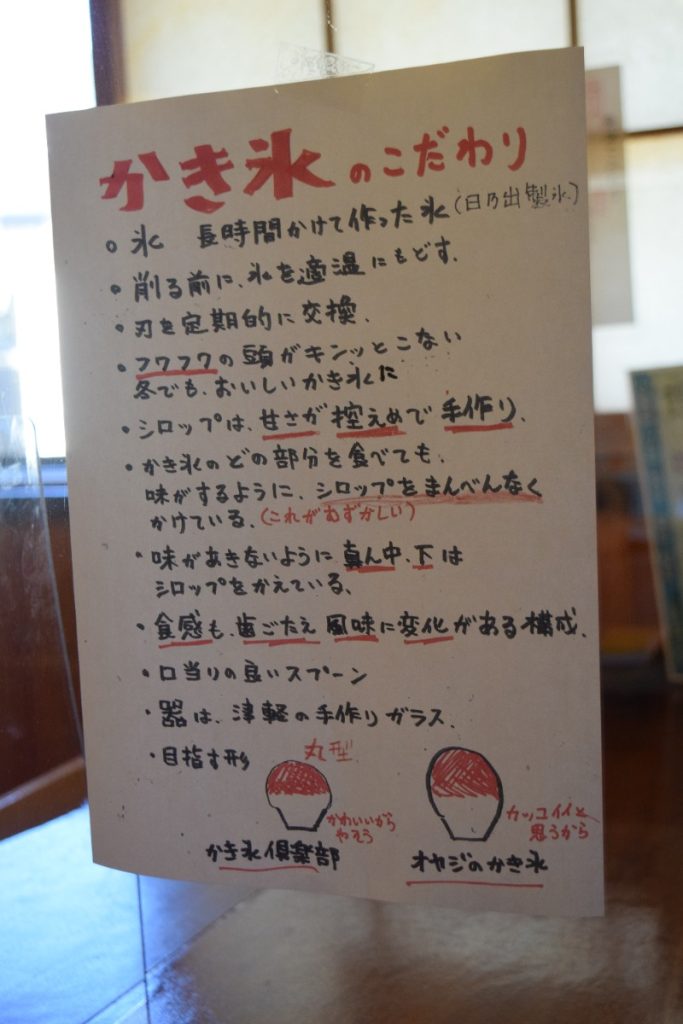 かき氷のこだわり
・氷 長時間かけて作った氷(日乃出製氷)
・削る前に、氷を適温にもどす.
・刃を定期的に交換.
・フワフワの頭がキンッとこない
冬でも、おいしいかき氷に
・シロップは、甘さが控えめで手作り.
・かき氷のどの部分を食べても、
味がするように、シロップをまんべんなく
かけている.(これがむずかしい)
・味があきないように真ん中、下は
シロップをかえている、
・食感も、歯ごたえ風味に変化がある構成.
・口当りの良いスプーン
・器は、津軽の手作りガラス.
・目指す形 丸型
かわいいから
やろう
カッコイイと
思うから
かき氷倶楽部
オヤジのかき氷